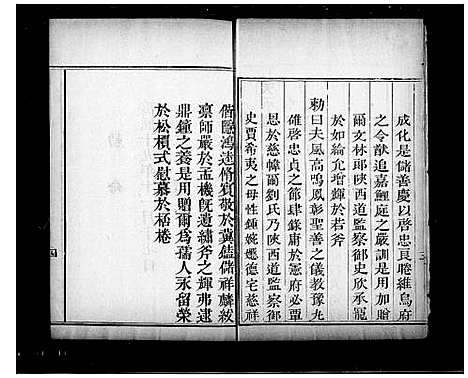 成化是儲善慶以啓忠貞睠維烏府
之令猷追嘉鯉庭之嚴訓是用加贈
爾文林郎陝西道監察御史欣承寵
於如綸允增輝於若斧
勅曰夫風高鳴鳳彰聖善之儀教豫九
碓啓忠貞之節肆錄庸於憲府必覃
恩於慈幃爾劉氏乃陝西道監察御
史賈希夷之母性鍾婉嬺德宅慈祥
偕隱鴻逵脩賓敬於冀饁儲祥麟紱
凛師嚴於孟機旣遺繡斧之輝弗逮
鼎鍾之養是用贈爾爲孺人永留榮
於松檟式慰慕於桮棬